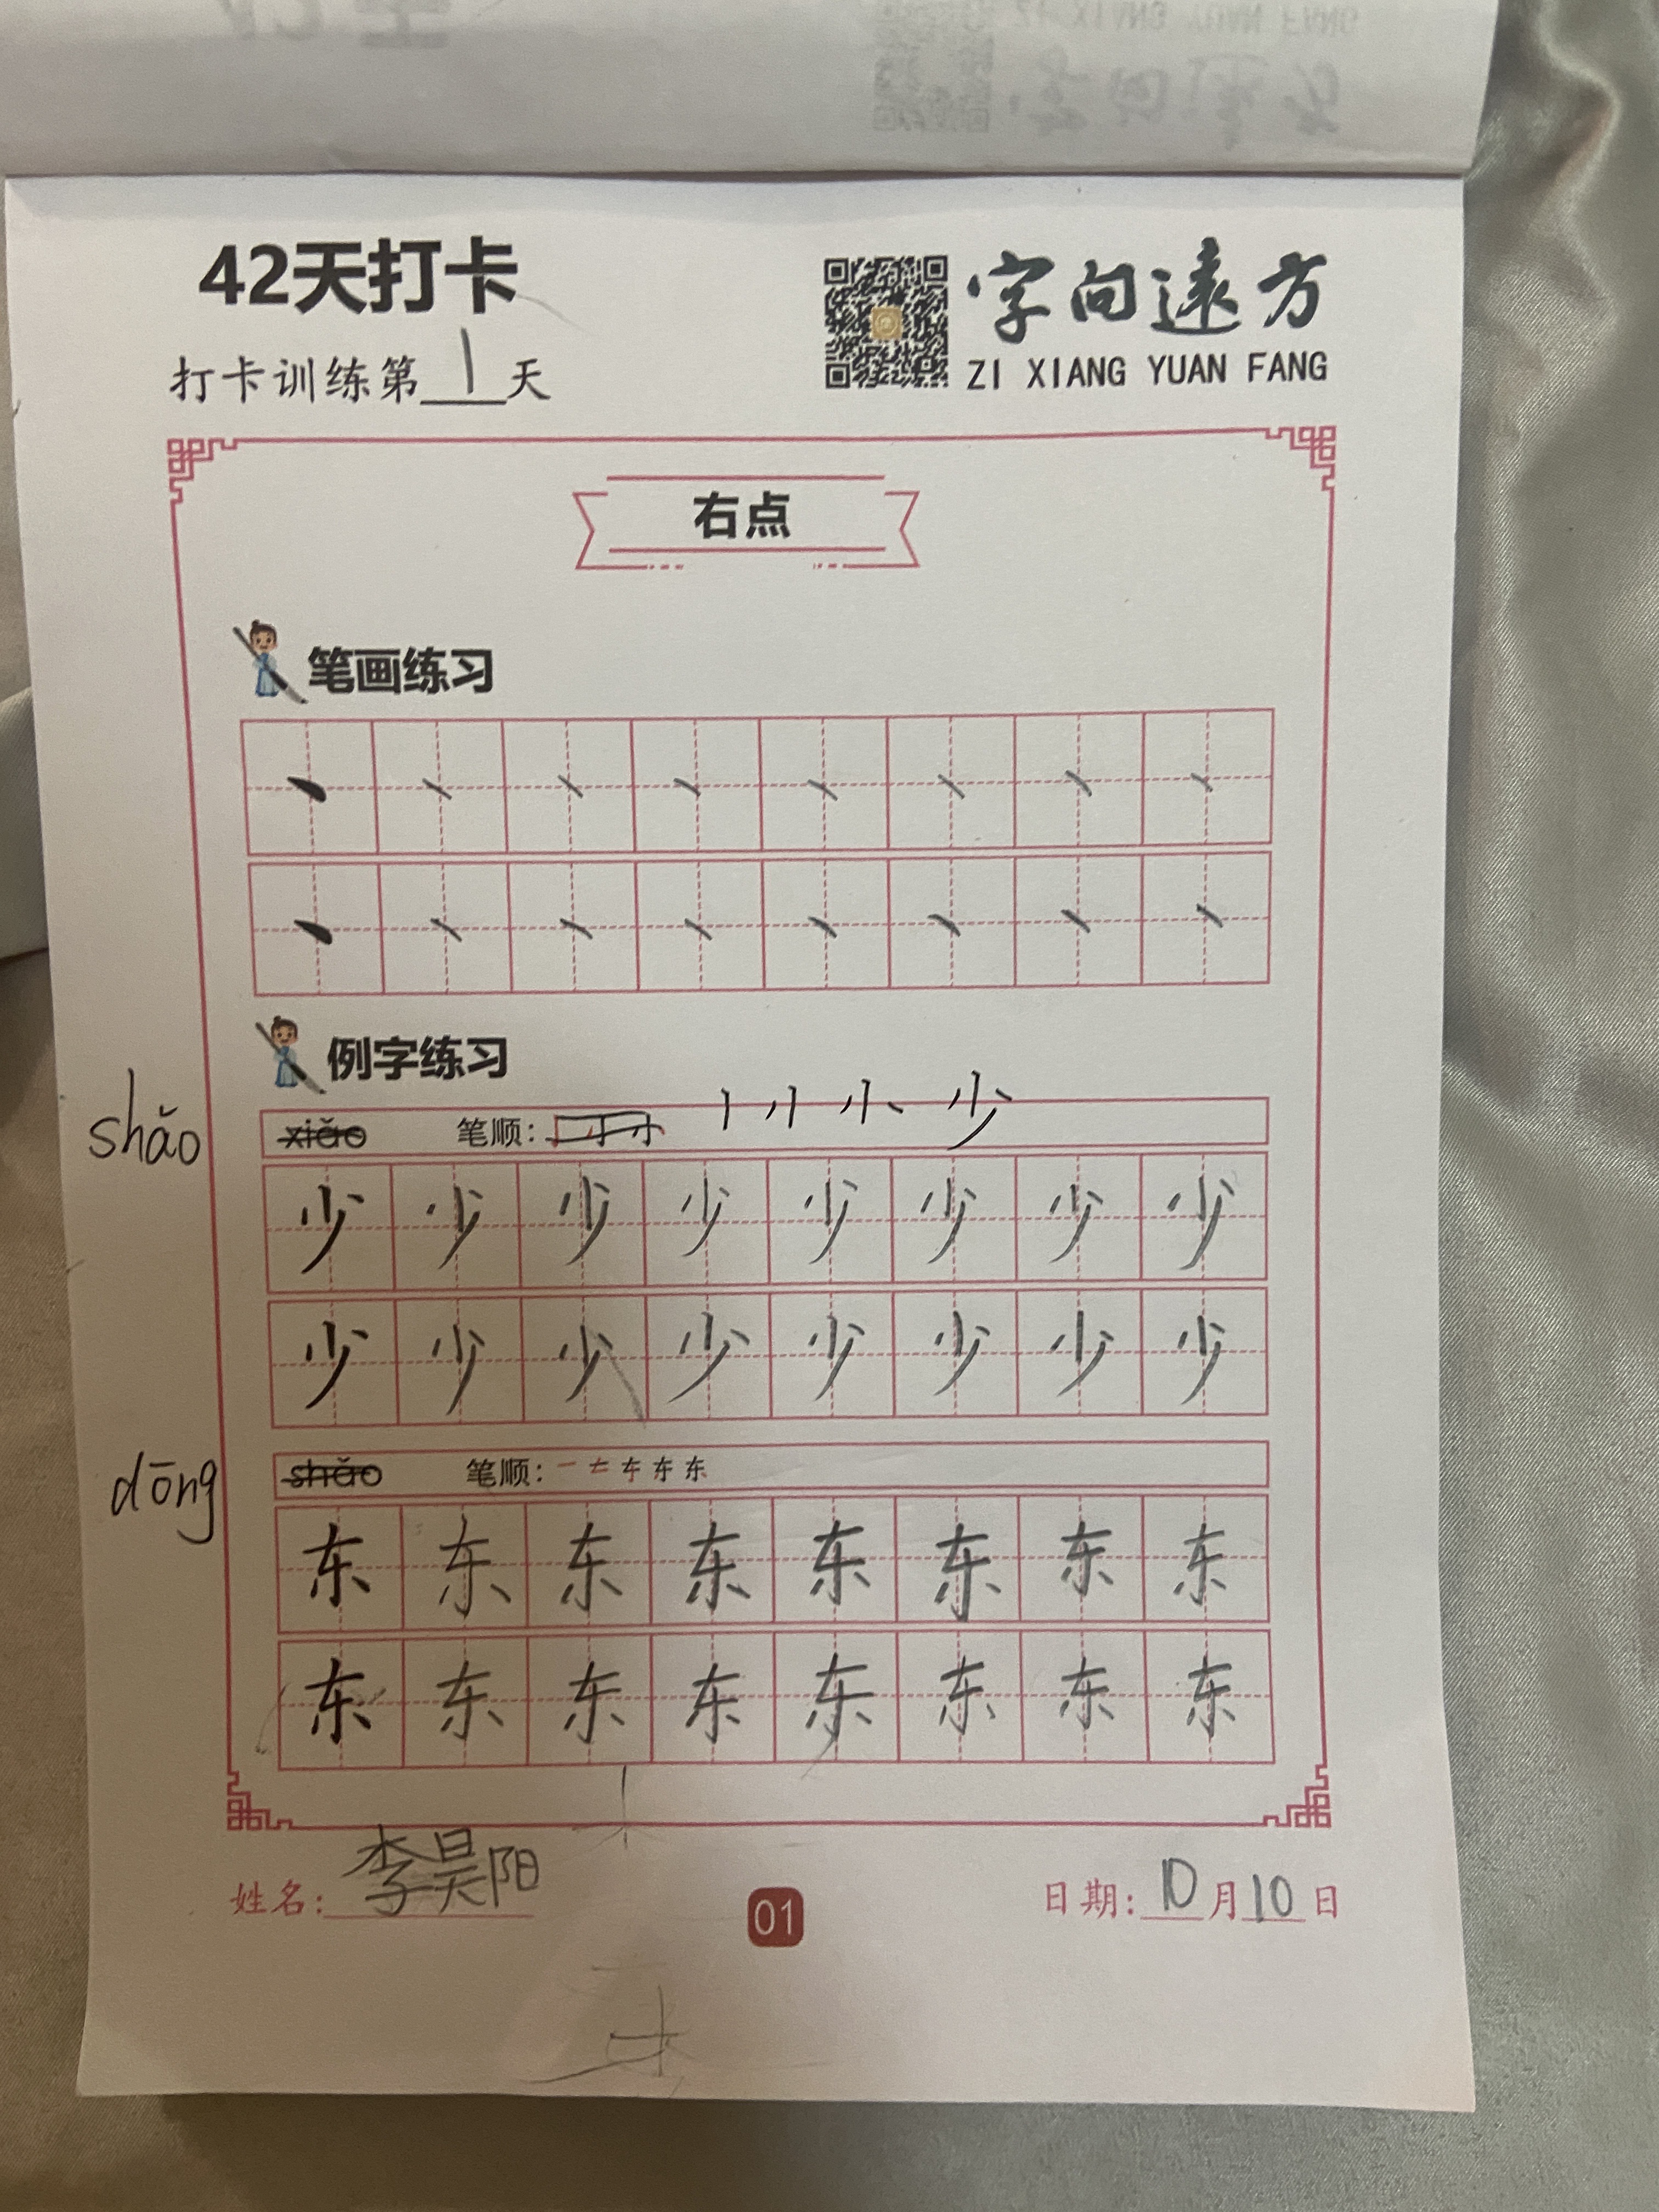 42天打卡
打卡训练第1天
字向遠方
ZI XIANG YUAN FANG
右点
笔画练习
丶 丶 丶 丶 丶 丶 丶 丶
丶 丶 丶 丶 丶 丶 丶 丶
例字练习
shǎo xiǎo 笔顺: 亅 小 小 少
少 少 少 少 少 少 少 少
少 少 少 少 少 少 少 少
dōng shǎo 笔顺: 一 东 东
东 东 东 东 东 东 东 东
东 东 东 东 东 东 东 东
姓名: 李昊阳
01
日期: 10月10日